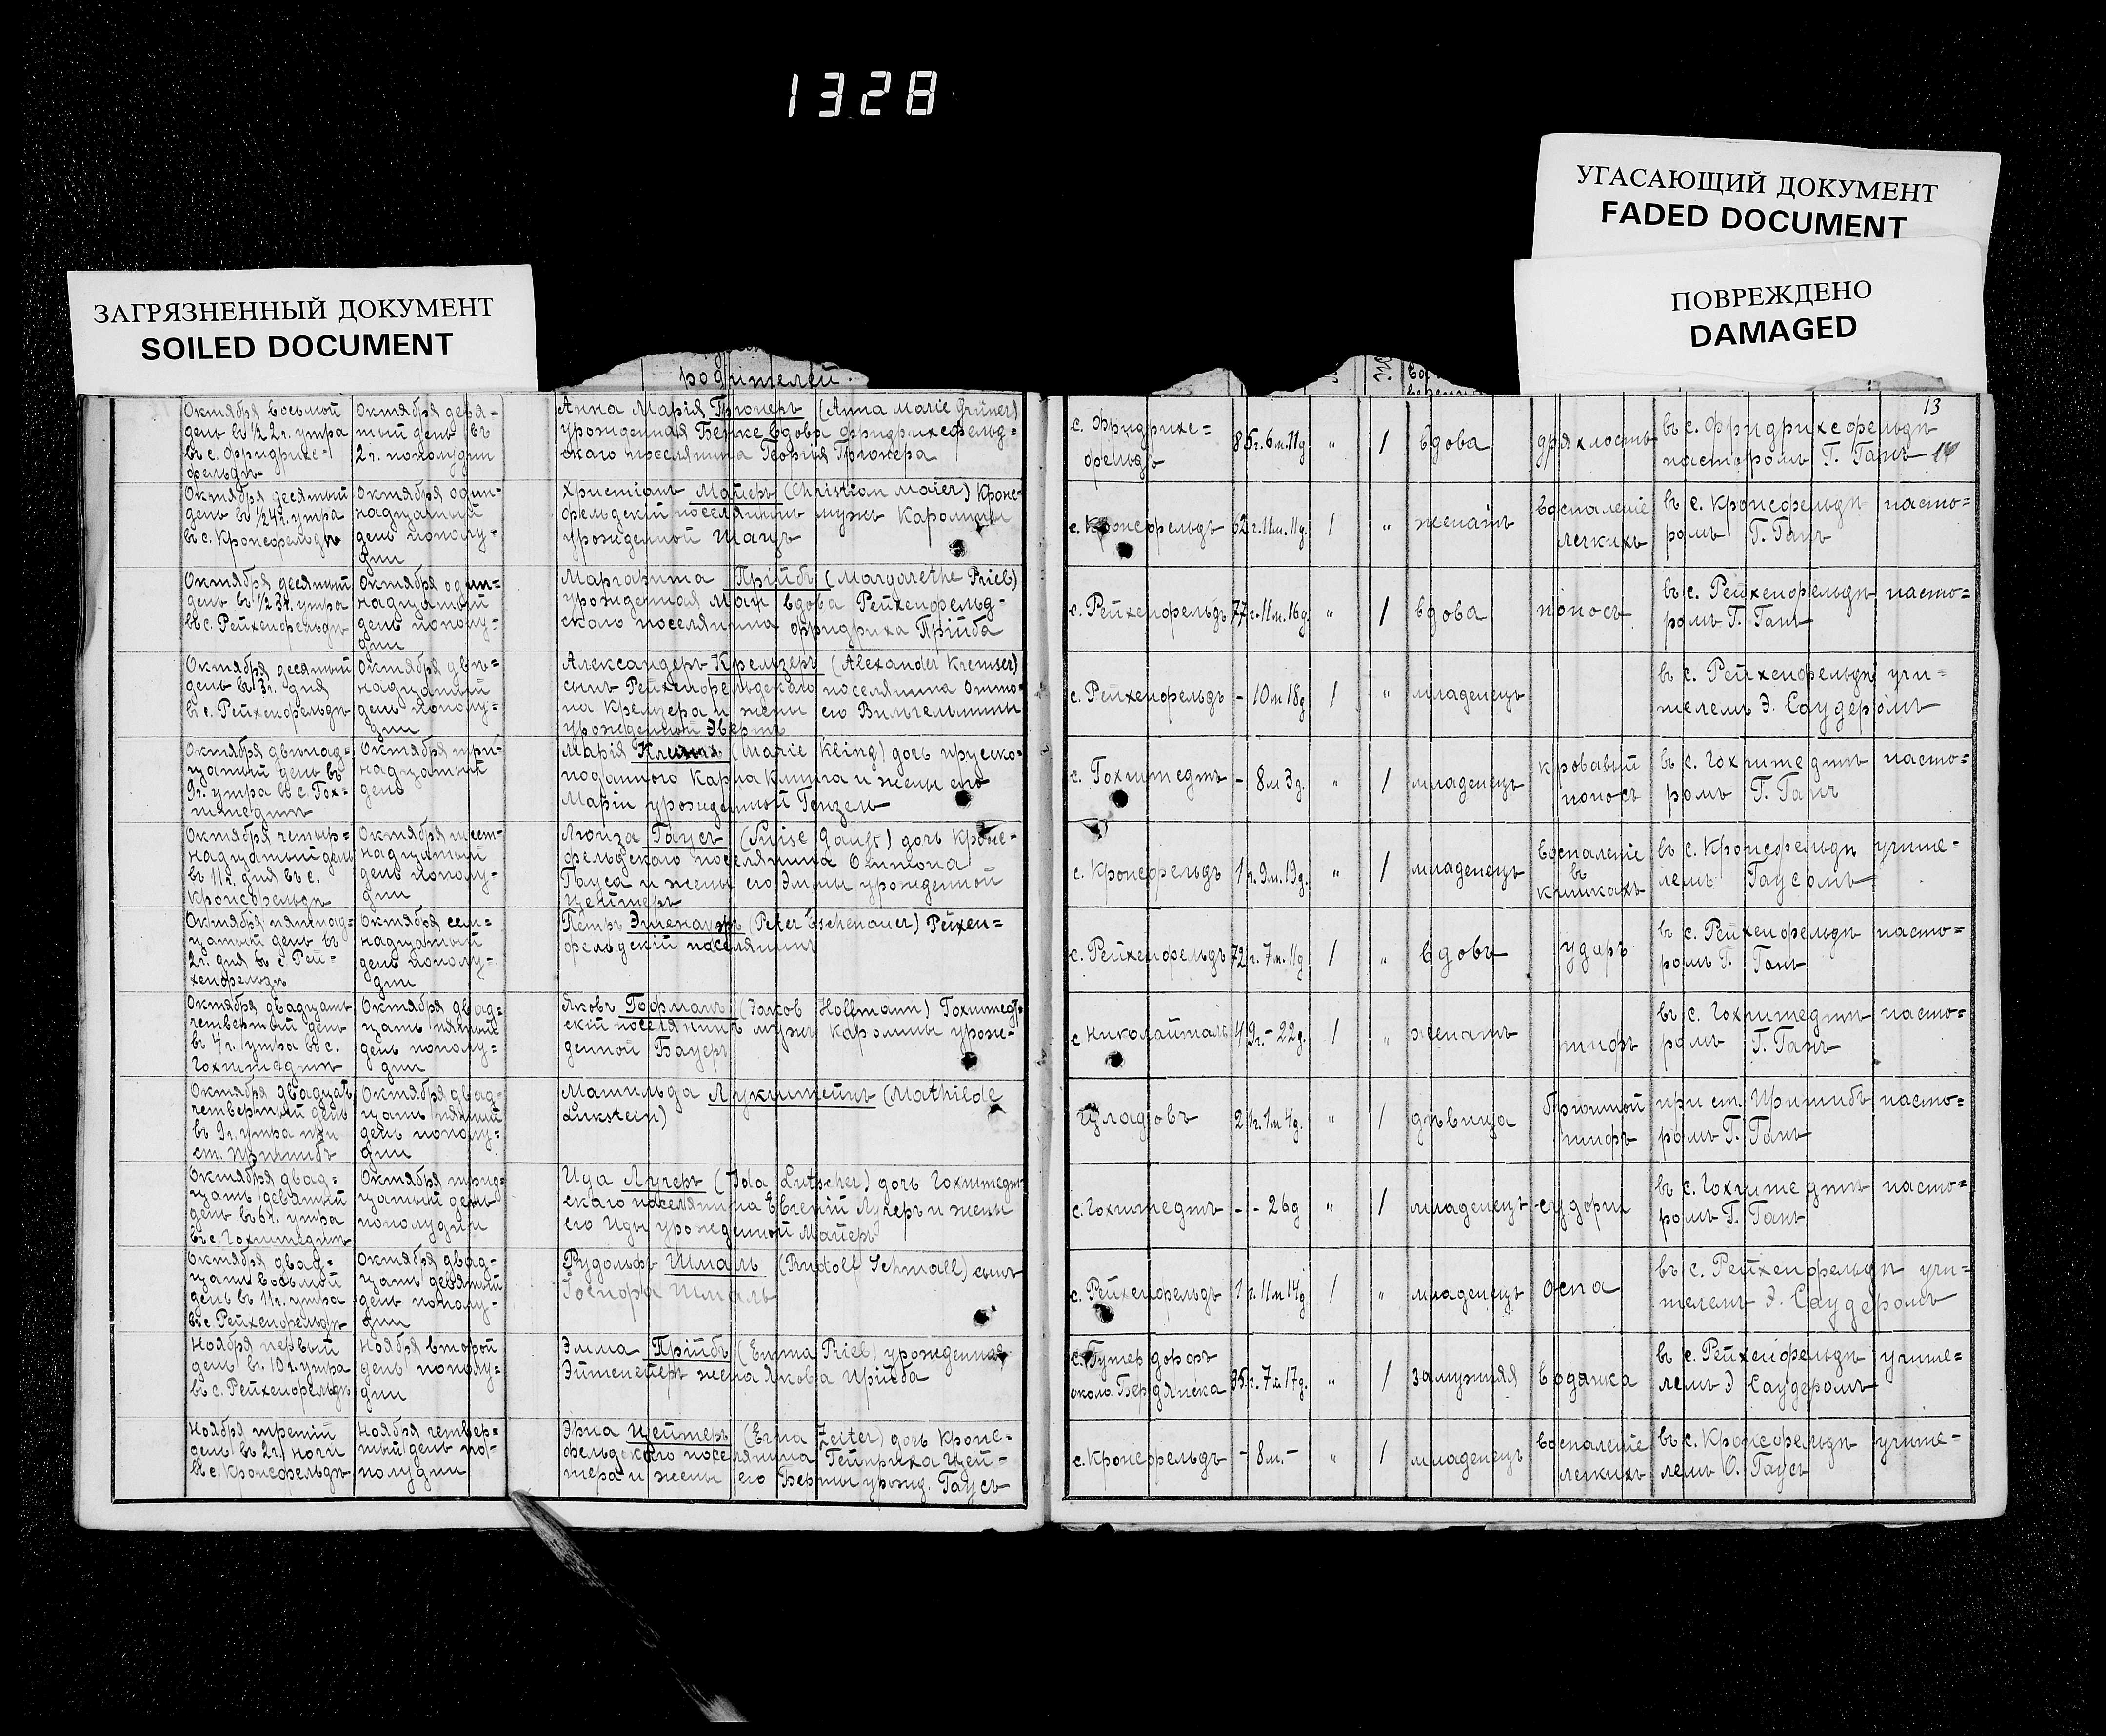 1328
УГАСАЮЩИЙ ДОКУМЕНТ
FADED DOCUMENT
ПОВРЕЖДЕНО
DAMAGED
ЗАГРЯЗНЕННЫЙ ДОКУМЕНТ
SOILED DOCUMENT
родителей.
13
14
Октября восьмой
день въ ½ 2 г. утра
въ с. Фридрихс-
фельдѣ
Октября девя-
тый день въ
2 г. пополудни
Анна Марія Грюнеръ (Anna Marie Grüner)
урожденная Бенке вдова фридрихсфельд=
скаго поселянина Георгія Грюнера
с. Фридрихс=
фельдъ
85г. 6м. 11д
„
1
вдова
дряхлость
въ с. Фридрихсфельдѣ
пасторомъ Г. Ганъ
Октября десятый
день въ ½ 4 г. утра
въ с. Кронсфельдѣ
Октября один-
надцатый
день пополу-
дни
Христіанъ Майеръ (Christian Maier) Кронс-
фельдскій поселянинъ мужъ Каролины
урожденной Шацъ
с. Кронсфельдъ
62г. 11м. 11д.
1
„
женатъ
воспаленіе
легкихъ
въ с. Кронсфельдѣ пасто=
ромъ Г. Ганъ
Октября десятый
день въ ½ 3 г. утра
въ с. Рейхенфельдѣ
Октября один=
надцатый
день пополу-
дни
Маргарита Прійбъ (Margarethe Prieb)
урожденная Ман вдова Рейхенфельд-
скаго поселянина Фридриха Прійба
с. Рейхенфельдъ
77г. 11м. 16д.
„
1
вдова
поносъ
въ с. Рейхенфельдѣ пасто=
ромъ Г. Ганъ
Октября десятый
день въ 3 г. дня
въ с. Рейхенфельдѣ
Октября двѣ=
надцатый
день пополу-
дни
Александеръ Кремзеръ (Alexander Kremser)
сынъ Рейхенфельдскаго поселянина Отто-
на Кремзера и жены его Вильгельмины
урожденной Эвертъ
с. Рейхенфельдъ
- 10м 18д
1
„
младенецъ
въ с. Рейхенфельдѣ учи=
телемъ Э. Саудеромъ
Октября двѣнад-
цатый день въ
9 г. утра въ с. Гох-
штедтѣ
Октября три-
надцатый
день
Марія Клингъ (Marie Kling) дочь прусско-
подданного Карла Клинга и жены его
Маріи урожденной Гензель
с. Гохштедтъ
- 8м 3д.
„
1
младенецъ
кровавый
поносъ
въ с. Гохштедтѣ пасто=
ромъ Г. Ганъ
Октября четыр=
надцатый день
въ 11 г. дня въ с.
Кронсфельдѣ
Октября шест-
надцатый
день пополу-
дни
Люиза Гаусъ (Luise Gauss) дочь Кронс-
фельдскаго поселянина Оттона
Гауса и жены его Эммы урожденной
Цейтеръ
с. Кронсфельдъ
1г. 9м. 19д.
„
1
младенецъ
воспаленіе
въ
кишкахъ
въ с. Кронсфельдѣ учите-
лемъ Гаусомъ
Октября пятнад=
цатый день въ
2 г. дня въ с. Рей-
хенфельдѣ
Октября сем=
надцатый
день пополу-
дни
Петръ Эшенауръ (Peter Eschenauer) Рейхен=
фельдскій поселянинъ
с. Рейхенфельдъ
72г. 7м. 11д
1
„
вдовъ
ударъ
въ с. Рейхенфельдѣ пасто=
ромъ Г. Ганъ
Октября двадцать
четвертый день
въ 4 г. утра въ с.
Гохштедтѣ
Октября двад-
цать пятый
день пополу-
дни
Яковъ Гофманъ (Jakob Hoffmann) Гохштедт-
скій поселянинъ мужъ Каролины урож-
денной Бауеръ
с Николайталь
49г. - 22д.
1
„
женатъ
тифъ
въ с. Гохштедтѣ пасто-
ромъ Г. Ганъ
Октября двадцать
четвертый день
въ 9 г. утра при
ст. Пришибъ
Октября двад-
цать пятый
день пополу-
дни
Матильда Лукштейнъ (Mathilde
Lukstein)
21г. 1м 4д.
„
1
дѣвица
брюшной
тифъ
при ст. Пришибъ пасто=
ромъ Г. Ганъ
Октября двад-
цать девятый
день въ 6 г. утра
въ с. Гохштедтѣ
Октября трид-
цатый день
пополудни
Ида Лучеръ (Ida Lutscher) дочь Гохштедт-
скаго поселянина Евгеній Лучеръ и жены
его Иды урожденной Майеръ
с. Гохштедтъ
- - 26д
„
1
младенецъ
судорги
въ с. Гохштедтѣ пасто=
ромъ Г. Ганъ
Октября двад-
цать восьмой
день въ 11 г. утра
въ с. Рейхенфельдѣ
Октября двад-
цать девятый
день пополу-
дни
Рудольфъ Шмаль (Rudolf Schmall) сынъ
Шмаль
с. Рейхенфельдъ
1г. 11м 14д
1
„
младенецъ
оспа
въ с. Рейхенфельдѣ учи=
телемъ Э. Саудеромъ
Ноября первый
день въ 10 г. утра
въ с. Рейхенфельдѣ
Ноября второй
день пополу-
дни
Эмма Прійбъ (Emma Prieb) урожденная
жена Якова Прійба
околъ Бердянска
35г. 7м 17д.
„
1
замужняя
водянка
въ с. Рейхенфельдѣ учите=
лемъ Э Саудеромъ
Ноября третій
день въ 2 г. ночи
въ с. Кронсфельдѣ
Ноября четвер=
тый день по-
полудни
Эрна Цейтеръ (Erna Zeiter) дочь Кронс=
фельдскаго поселянина Гейнриха Цей-
тера и жены его Берты урожд. Гаусъ
с. Кронсфельдъ
- 8м. -
„
1
младенецъ
воспаленіе
легкихъ
въ с. Кронсфельдѣ учите-
лемъ О. Гаусъ